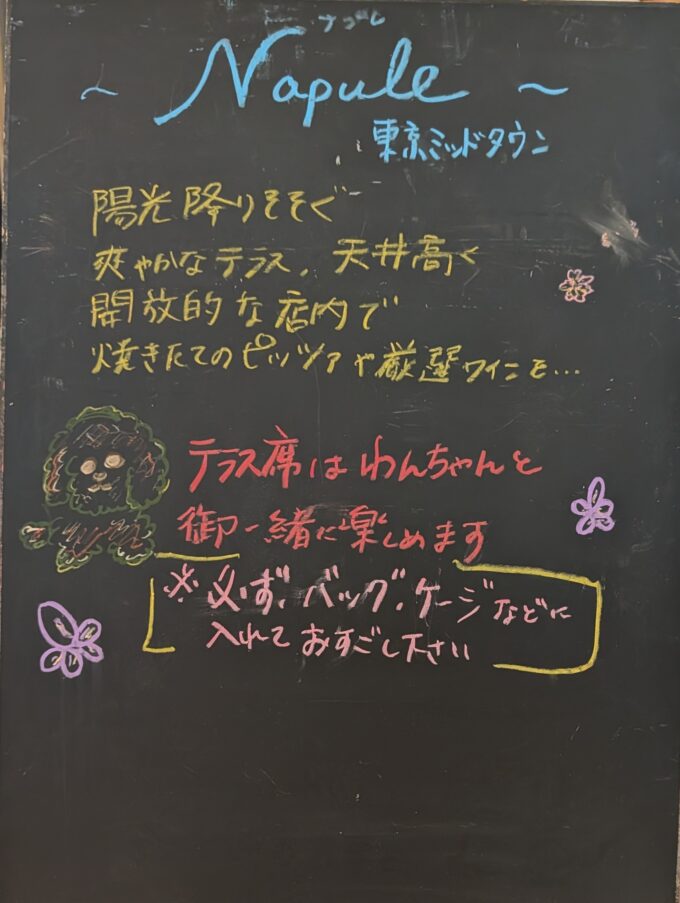 ナプレ
~ Napule ~
東京ミッドタウン
陽光降りそそぐ
爽やかなテラス、天井高く
開放的な店内で
焼きたてのピッツァや厳選ワインを...
テラス席はわんちゃんと
御一緒に楽しめます
※必ず、バッグ、ケージなどに
入れておすごし下さい